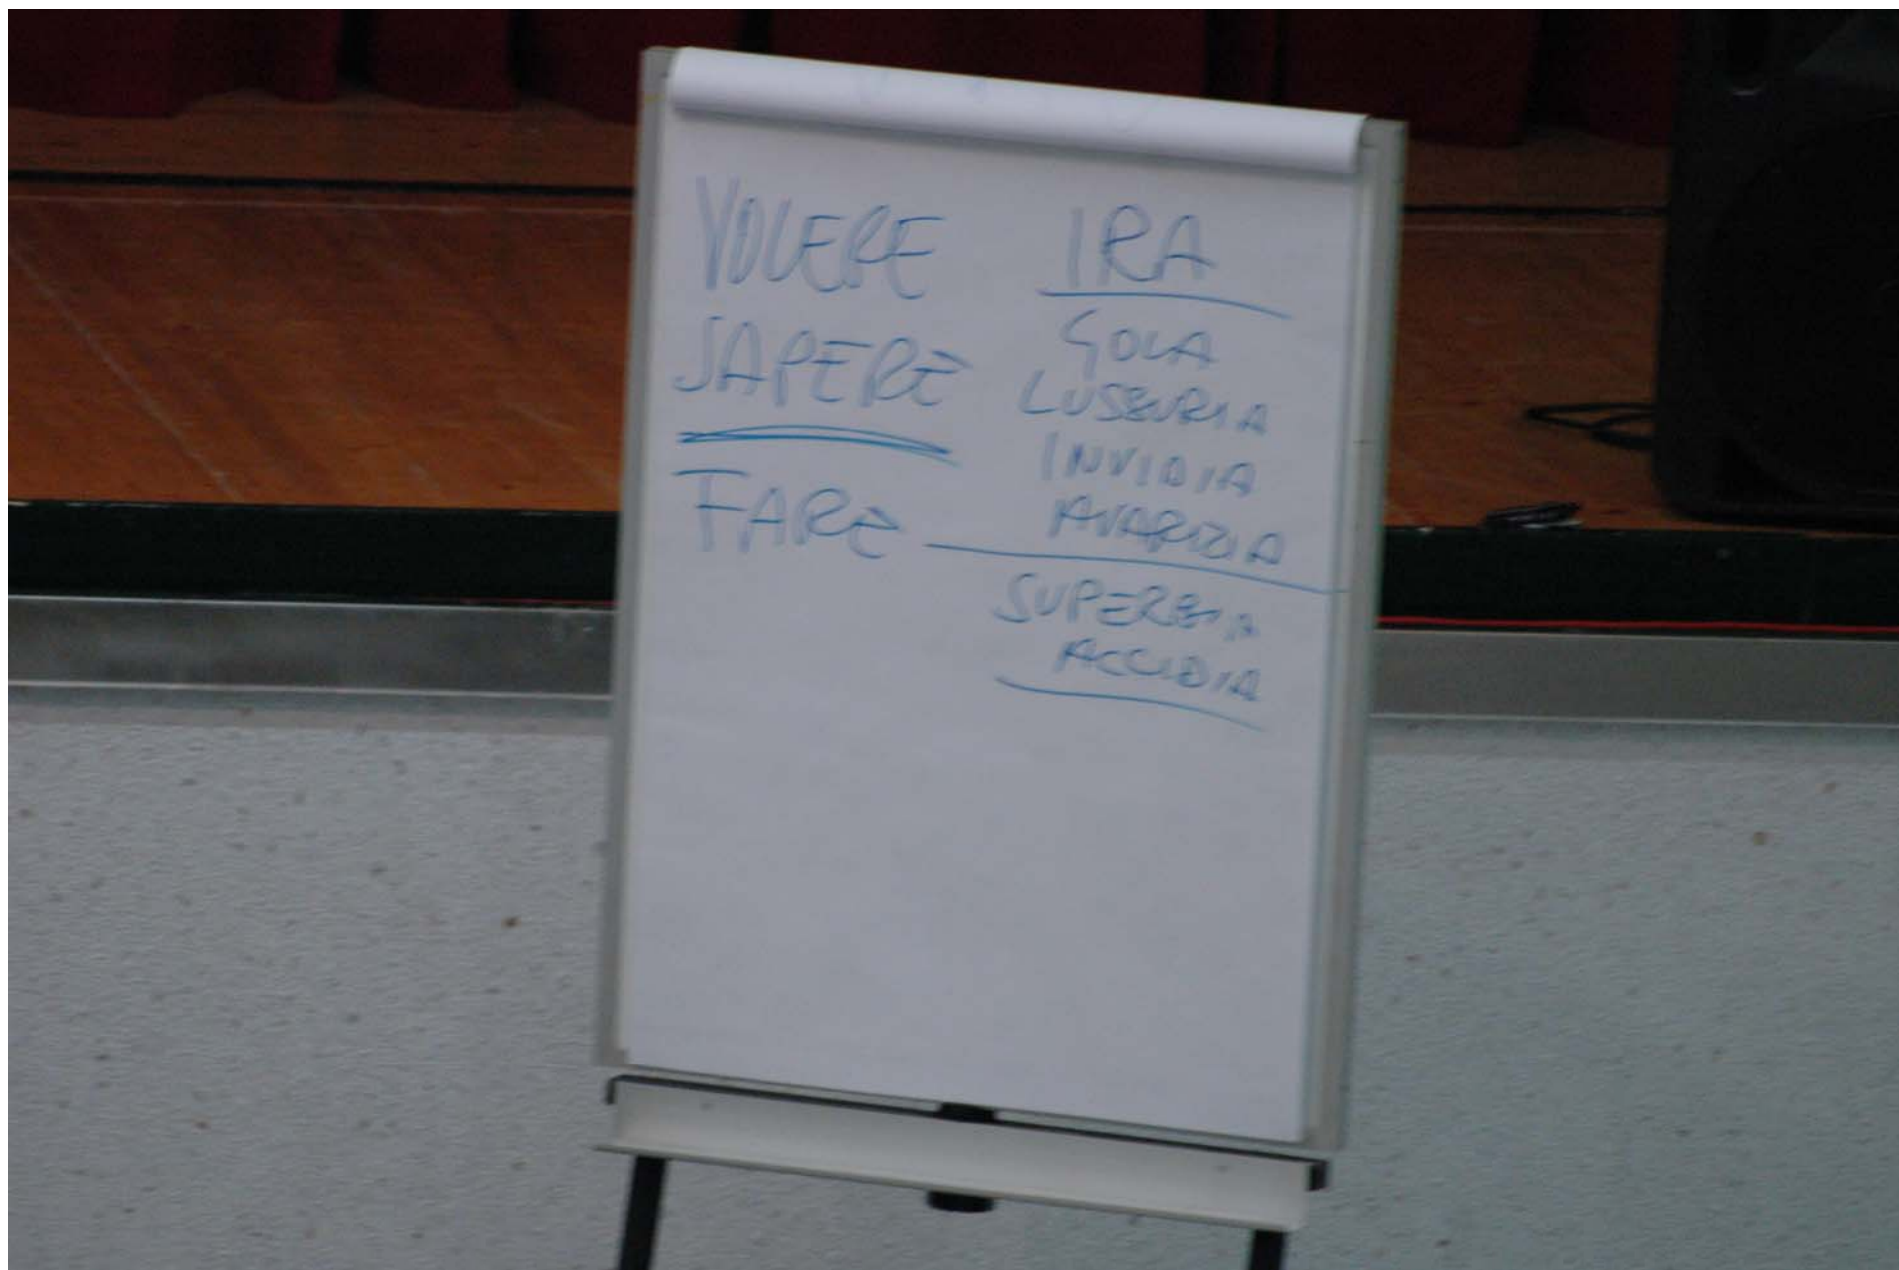 VOLERE
SAPERE
FARE
IRA
GOLA
LUSSURIA
INVIDIA
AVARIZIA
SUPERBIA
ACCIDIA